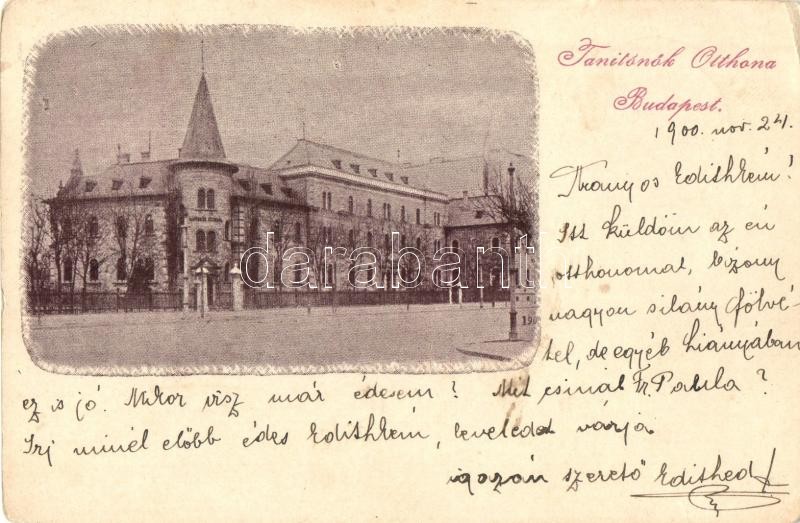 Tanitónők Otthona
Budapest.
1900. nov. 24.
Aranyos Edithkém!
Itt küldöm az én
otthonomat, bizony
nagyon silány fölvé-
tel, de egyéb hiányában
ez is jó. Mikor visz már édesem? Mit csinál Fr. Paula?
Irj minél előbb édes Edithkém, leveledet várja
igazán szerető Edithed
darabanth
190